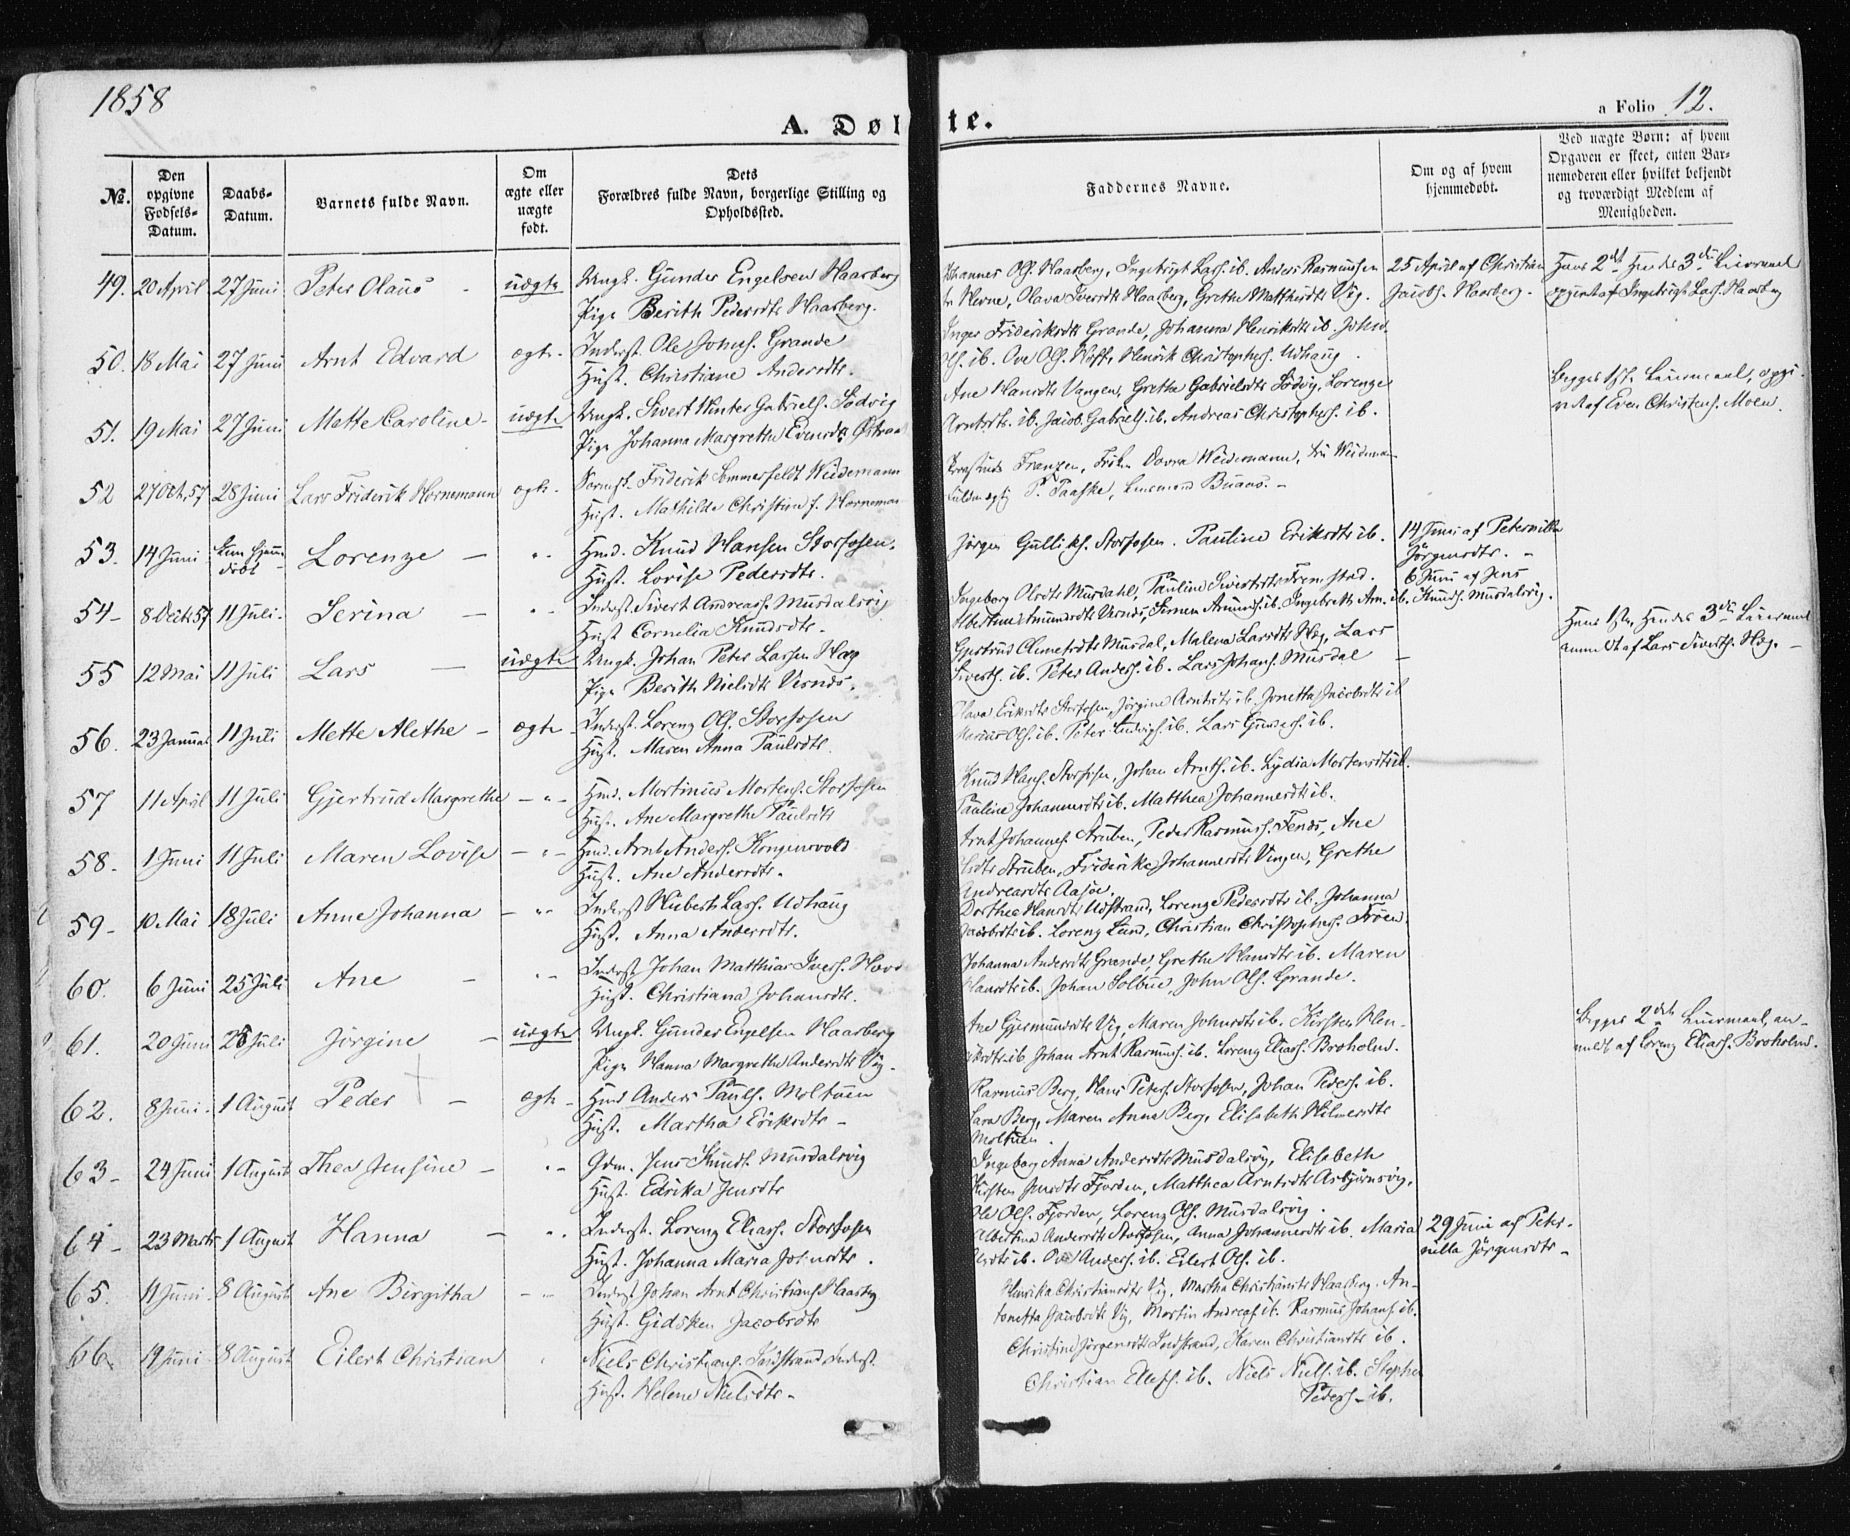 1858
a Folio 12.
A. Døbte.
No.
Den opgivne Fødsels-Datum.
Daabs-Datum.
Barnets fulde Navn.
Om ægte eller uægte født.
Dets Forældres fulde Navn, borgerlige Stilling og Opholdssted.
Faddernes Navne.
Om og af hvem hjemmedøbt.
Ved uægte Børn: af hvem Opgaven er skeet, enten Barnemoderen eller hvilket bekjendt og troværdigt Medlem af Menigheden.
49. 20 April 27 Juni Peter Olaus - uægte Ungk. Gunder Engelsen Haarberg
Pige Berith Pedersdtr Haarberg.
Johannes Ols. Haarberg, Ingebrigt Lars. ib. Anders Rasmussen
Hevne, Olava Iversdtr Haarberg, Grethe Matthisdtr Vig.
25 April af Christian
Jacobs. Haarberg.
Hans 2det Hendes 3die Leiermaal
opgivet af Ingebrigt Lars. Haarberg
50. 18 Mai 27 Juni Arnt Edvard ægte- Inderst. Ole Johns. Grande
Hust. Christiane Andersdtr.
Inger Frideriksdtr Grande, Johanna Henriksdtr ib. John
Ols. ib. Ove Ols. Hoff, Henrik Christophers. Udhaug.
51. 19 Mai 27 Juni Mette Caroline- uægte Ungk. Sivert Winter Gabriels. Sødvig
Pige Johanna Margrethe Evensdtr
Ane Hansdtr Vangen, Grethe Gabrielsdtr Sødvig, Lorenze
Arntsdtr. ib. Jacob Gabriels. ib. Andreas Christophers. ib.
Begges 1ste Leiermaal, opgi-
vet af Even Christens. Moen.
52 27 Oct. 57 28 Juni Lars Friderik Hornemann ægte- Friderik Sommerfeldt Weidemann
Hust. Mathilde Christine f. Horneman
Franzen, Frøken Weidemann, Fru Weideman
P. Paaske, Lensmand Buaas.-
53. 14 Juni Lorenze - " Hmd. Knud Hansen Storfosen.
Hust. Lovise Pedersdtr.
Jørgen Gulliks. Storfosen. Pauline Eriksdtr ib.
14 Juni af Peternille
Jørgensdtr. -
54- 8 Decbr 57 11 Juli. Serina - " Inderst. Sivert Andreass. Musdalsvig
Hust Cornelia Knudsdtr.
Ingeborg Olsdtr Musdahl, Pauline Sivertsdtr Fremstad.
6 Juni af Jens
Knuds. Musdalsvig.
55 12 Mai 11 Juli Lars - uægte Ungk. Johan Peter Larsen Hæg
Pige Berith Nielsdtr
Musdal, Malena Larsdtr Hæg, Lars
Siverts. ib. Peter Anders. ib. Lars Johans. Musdal -
Hans 1ste, Hendes 3die Leiermaal
anmeldt af Lars Siverts. Hæg. -
56. 23 Januar 11 Juli Mette Alethe - ægte Inderst. Lorenz Ols. Storfosen
Hust. Maren Anna Paulsdtr.
Olava Eriksdtr Storfosen, Jørgine Arntsdtr ib. Jonetta Jacobsdtr ib
Marius Ols. ib. Peter Ludvigs. ib. Lars Gunders. ib.
57 11 April 11 Juli Gjertrud Margrethe - " - Hmd. Mortinus Mortens. Storfosen
Hust. Ane Margrethe Paulsdtr
Knud Hans. Storfosen, Johan Arnts. ib. Lydia Mortensdtr ib.
Pauline Johannesdtr ib. Matthea Johannesdtr ib.
58. 1 Juni 11 Juli Maren Lovise - " - Hmd. Arnt Anders. Kongensvold
Hust. Ane Andersdtr.
Arnt Johannes. Struben, Peder Rasmuss. Fends, Ane
Struben, Friderikke Johannesdtr Vingen, Grethe
Andreasdtr Aasøe.
59- 10 Mai 18 Juli Anne Johanna - " Inderst Huberth Lars. Udhaug
Hust. Anna Andersdtr.
Dorthea Hansdtr Udstrand, Lorenze Pedersdtr ib. Johanna
Jacobsdtr ib. Lorenz Lund, Christian Christophers. Frøen.
60. 6 Juni 25 Juli Ane - " Inderst Johan Matthias Ivers.
Hust. Christiana Johansdtr.
Johanna Andersdtr Grande, Grethe Hansdtr ib. Maren
Hansdtr ib. Johan Solbue, John Ols. Grande.
61. 20 Juni 25 Juli Jørgine - uægte Ungk. Gunder Engelsen Haarberg
Pige Hanna Margrethe Andersdtr Vig.
Ane Gjermundsdtr Vig, Maren Johnsdtr ib. Kirsten Hen-
riksdtr ib Johan Arnt Rasmuss. ib. Lorenz Eliass. Broholm.
Begges 2det Leiermaal, an-
meldt af Lorenz Eliass. Broholm.
62. 8 Juni. 1 August Peder - ægte - Hmd Anders Pauls. Moltuen
Hust. Martha Eriksdtr -
Rasmus Berg, Hans Peters. Storfosen, Johan Peders. ib.
Berg, Maren Anna Berg, Elisabeth Hilmersdtr
Moltuen.
63- 24 Juni 1 August Thea Jensine - " - Gdm. Jens Knuds. Musdalsvig
Hust. Edrika Jensdtr
Ingeborg Anna Andersdtr Musdalsvig, Elisabeth
Kirsten Jensdtr Fjorden, Matthea Arntsdtr Asbjørnsvig,
Ole Ols. Fjorden, Lorenz Ols. Musdalsvig.
64- 23 Marts 1 August Hanna - " Inderst. Lorenz Eliass. Storfosen
Hust. Johanna Maria Johnsdtr.
Albertina Andersdtr Storfosen, Anna Johannesdtr ib. Maria
Olsdtr ib. Ove Anders. ib. Eilert Ols. ib.
29 Juni af Peter-
nille Jørgensdtr -
65. 11 Juni. 8 August Ane Birgitha - " Inderst Johan Arnt Christians. Haarberg
Hust. Gidsken Jacobsdtr
Henrika Christiansdtr Vig, Martha Christiansdtr Haarberg, An-
tonetta Jacobsdtr Vig, Martin Andreas. ib. Rasmus Johans. ib.
66. 19 Juni 8 August Eilert Christian " Niels Christians. Indstrand Inderst.
Hust. Helene Nielsdtr-
Christine Jørgensdtr Indstrand, Karen Christiansdtr ib.
Christian Ellefs. ib. Niels Niels. ib. Stephen
Peders. ib.